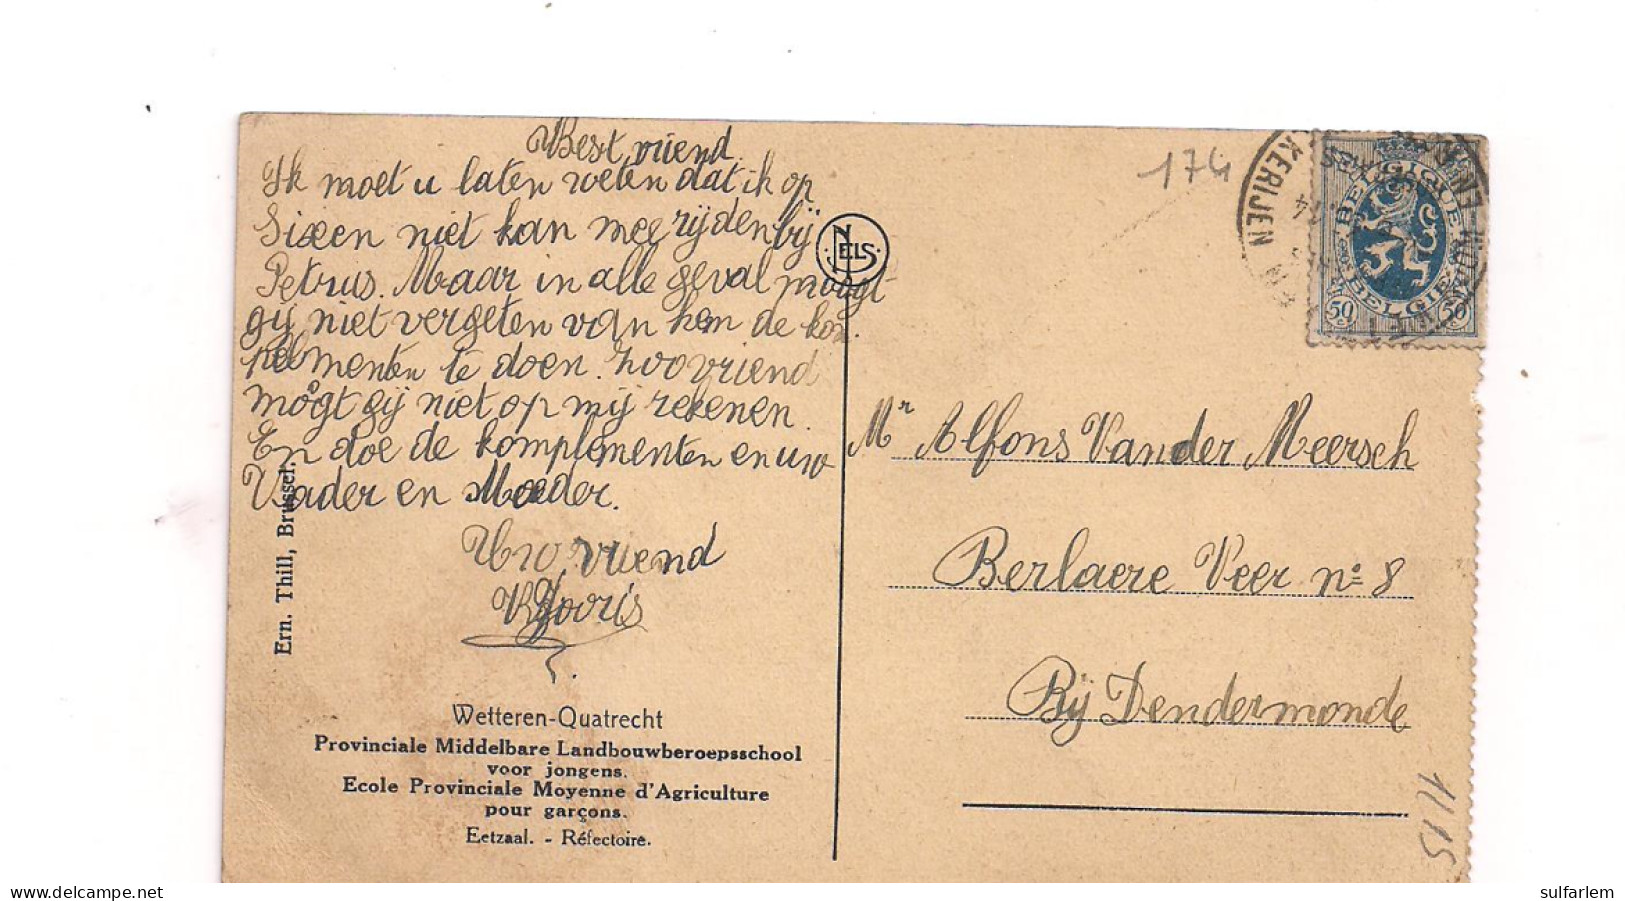 Best vriend
Ik moet u laten weten dat ik op
Sixeen niet kan meerijden bij
Petrus. Maar in alle geval moogt
gij niet vergeten van hem de kom
pelmenten te doen. Zoo vriend
mogt gij niet op mij rekenen.
En doe de komplementen en uw
Vader en Moeder.
Uw vriend
Ern. Thill, Brussel.
Wetteren-Quatrecht
Provinciale Middelbare Landbouwberoepsschool
voor jongens.
Ecole Provinciale Moyenne d'Agriculture
pour garçons.
Eetzaal. - Réfectoire.
NELS
174
KERIJEN
BELGIQUE
BELGIE
50 50
Mr Alfons Van der Meersch
Berlaere Veer no 8
Bij Dendermonde
delcampe.net
sulfarlem